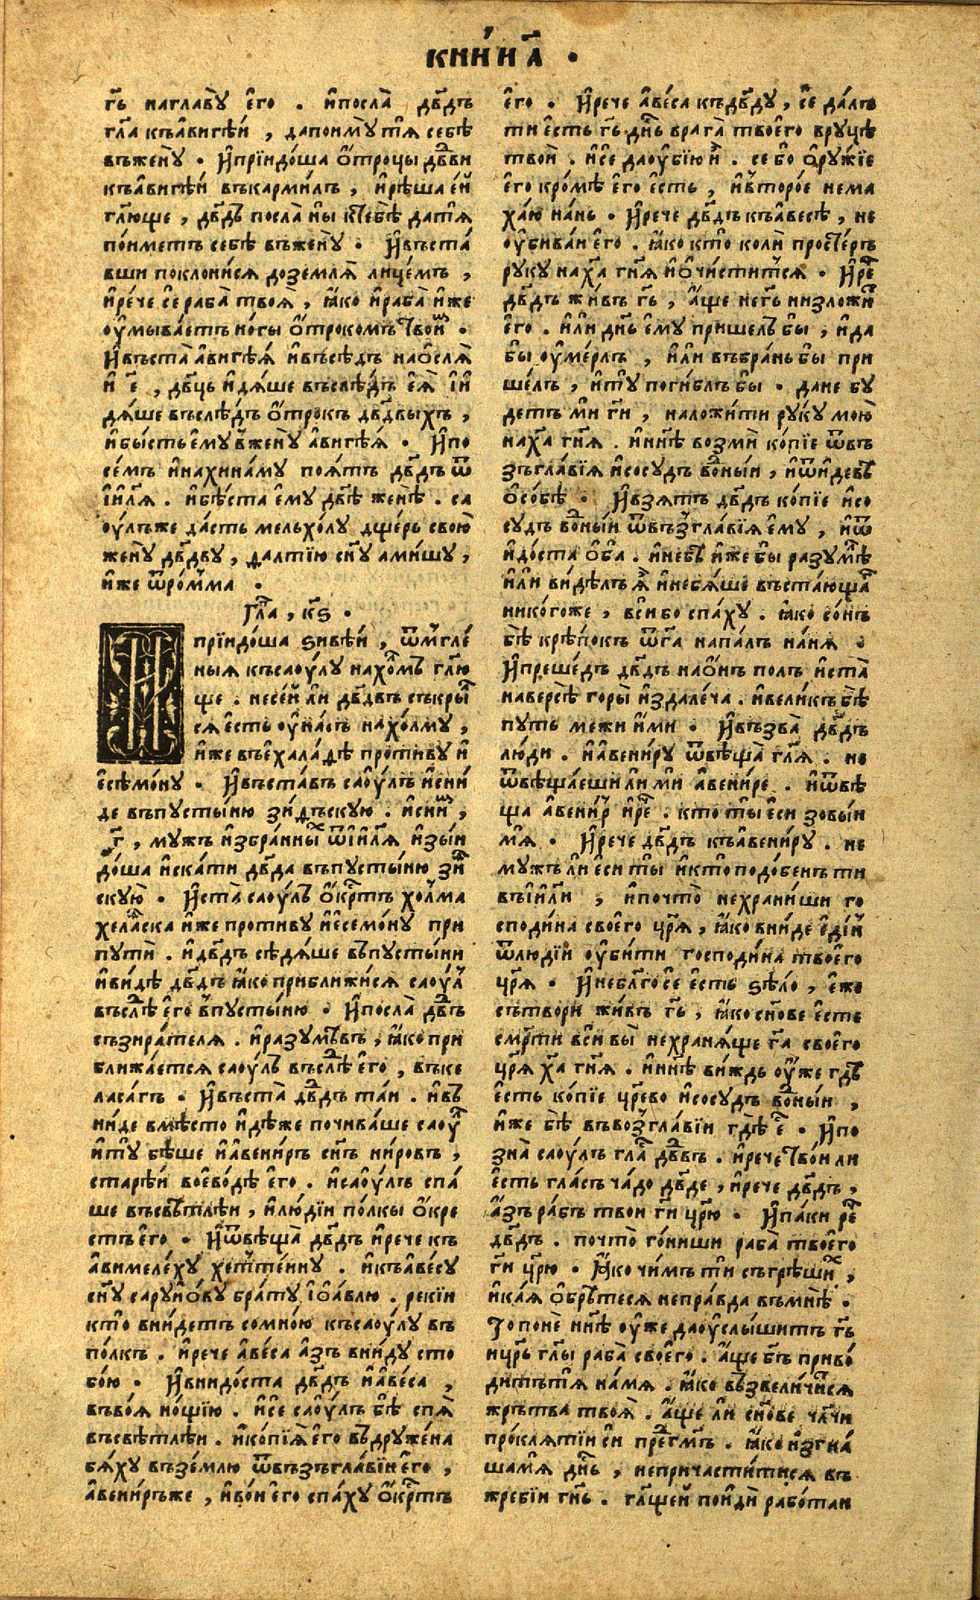 кни́и а҃ .
гь҃ наглав̾у є҆го . и҆посла̀ дв҃дъ
гл҃а къа҆виге́и , дапоимⸯу тѧ̀ себѣ̀
въженⸯу . И҆прїидо́ша ѻ҆́троцы дв҃дви
къа҆виге́и въкармилъ , и҆рѣ́ша е҆́и
гл҃юще , дв҃дъ посла̀ ны̀ ктебѣ̀ датѧ̀
по́иметъ себѣ̀ въженⸯу . И҆въста́
вши поклони́сѧ доземлѧ̀ лице́мъ ,
и҆ре́че сѐ раба̀ твоѧ̀ , ꙗ҆́ко и҆раба̀ и҆́же
оу҆мыва́етъ но́гы ѻ҆́трокомъ твои҆̀м .
И҆въста̀ а҆вигеѧ̀ и҆въсѣ́дъ наѻ҆слѧ̀
и҆ е҃ , дв҃ць и҆дѧ́ше въслѣ́дъ е҆ѧ̀ і҆ и҆
дѧ́ше въслѣ́дъ ѻ҆́трокъ дв҃двыхъ ,
и҆бы́сть е҆му вженⸯу а҆вигеѧ̀ . И҆по
се́мъ и҆нахинаа́му поѧ́тъ дв҃дъ ѿ
і҆и҃лѧ . и҆бѣ́ста е҆му двѣ̀ женѣ̀ . са
оу́лъже да́сть мельхо́лу дще́рь свою̀
женⸯу дв҃дву , далтїю сн҃у амишу ,
и҆́же ѿро́мма .
Гла҃ , кѕ҃ .
прїидо́ша зивѣ́и , ѿмгле́
ныѧ къса́оулу нахо́лмъ гл҃ю
ще . несе́и ли дв҃дъ съкры́
сѧ є҆сть оу҆на́съ нахо́лму ,
и҆́же въехала́дѣ проти́ву и҆
есемо́ну . И҆въста́въ саоу́лъ и҆сни́
де въпусты́ню зи́дьскую . и҆сни́м ,
г҃ , мужъ и҆збра́нны́х ѿі҆и҃лѧ и҆зыи́
до́ша и҆ска́ти дв҃да въпусты́ню зи́
скую̀ . И҆ста̀ саоу́лъ ѻ҆́крⸯтъ хо́лма
хела́ска и҆́же проти́ву и҆есемо́ну при
путѝ . и҆дв҃дъ сѣдѧ́ше въпусты́ни
и҆ви́дѣ дв҃дъ ꙗ҆́ко прибли́жисѧ саоу́л
въслѣ́ є҆го̀ впусты́ню . И҆посла̀ дв҃дъ
съзира́телѧ . и҆разумѣ́въ , ꙗ҆́ко при
ближа́етсѧ саоу́лъ въслѣ́ є҆го , въке
ласа́гъ . И҆въста̀ дв҃дъ та́и . и҆въ
ни́де вмѣ́сто и҆дѣ́же почива́ше саоу́л
и҆тⸯу бѣ́ше и҆авени́ръ сн҃ъ ни́ровъ ,
старѣ́и воево́дѣ є҆го . и҆саоу́лъ спа́
ше въсвѣ́тлѣи , и҆лю́дїи по́лкы ѻ҆́кре
стъ є҆го . И҆ѿвѣща̀ дв҃дъ и҆рече къ
а҆вимеле́ху хетте́ину . и҆къа҆ве́су
сн҃у саруи́ову бра́ту і҆оа́влю . рекїи
кто̀ вни́детъ сомно́ю къса́оулу въ
по́лкъ . и҆рече а҆ве́са а҆́зъ вни́ду сто
бо́ю . И҆внидо́ста дв҃дъ и҆а҆ве́са ,
въво́ѧ но́щїю . и҆сѐ саоу́лъ бѣ̀ спѧ̀
въсвѣ́тлѣи . и҆копїѧ̀ є҆го въдруже́на
бѧ́ху въземлю ѿвъзъгла́вїи є҆го ,
а҆вени́рьже , и҆во́и є҆го спа́ху ѻ҆́крⸯтъ
є҆го . И҆рече а҆ве́са къдв҃ду , сѐ да́лъ
ти є҆сть гь҃ дн҃ь врага̀ твоего̀ вруцѣ
твои̑ . и҆сѐ даоу҆бїю и҆̀ . се бо ѻ҆ру́жїе
є҆го кро́мѣ є҆го є҆́сть , и҆второ́е нема
ха́ю на́нь . И҆рече дв҃дъ къа҆весѣ , не
оу҆бива́и є҆го . ꙗ҆́ко кто̀ коли̑ просте́ръ
руку наха҃ гн҃ѧ и҆ѻ҆чи́ститсѧ . И҆рⷱе
дв҃дъ жи́въ гь҃ , а҆́ще негь҃ низложи́т
є҆го . и҆лѝ дн҃ь є҆му прише́лъ бы̀ , и҆да
бы̀ оу҆ме́рлъ , и҆лѝ въбра́нь бы̀ при
ше́лъ , и҆тⸯу поги́блъ бы̀ . дане бу
детъ мѝ гн҃и , наложи́ти ру́ку мою̀
наха҃ гн҃ѧ . и҆нн҃ѣ возмѝ ко́пїе ѿвъ
зъгла́вїѧ и҆сосу́дъ во́ныи , и҆ѿи́девѣ
ѻ҆со́бѣ . И҆взѧ́тъ дв҃дъ ко́пїе и҆со
су́дъ во́ныи ѿвъзгла́вїѧ є҆му , и҆ѿ
и҆до́ста ѻ҆́ба . и҆небѣ̀ и҆́же бы разумѣ́
и҆лѝ ви́дѣлъ ѧ҆̀ и҆небѧ́ше въста́юща
нико́гоже , всѝ бо спа́ху . ꙗ҆́ко со́нъ
бѣ̀ крѣ́покъ ѿга҃ напа́лъ на́нѧ .
И҆преше́дъ дв҃дъ наѻ҆́нъ полъ и҆ста̀
наверсѣ̀ горы̀ и҆здале́ча . и҆вели́къ бѣ̀
пу́ть межи и҆́ми . И҆възва̀ дв҃дъ
лю́ди . и҆авени́ру ѿвѣща̀ гл҃ѧ . не
ѿвѣща́еши ли ми а҆вени́ре . и҆ѿвѣ
ща а҆вени́р и҆рⷱе . кто ты̀ є҆сѝ зовы́и
мѧ̀ . И҆рече дв҃дъ къа҆вени́ру . не
му́жъ ли є҆сѝ ты̀ и҆кто̀ подо́бенъ ти
въі҆и҃ли , и҆почто̀ нехрани́ши го
споди́на своего̀ цр҃ѧ , ꙗ҆́ко вни́де є҆ди́н
ѿлюдїи оу҆би́ти господи́на твоего̀
цр҃ѧ . И҆небл҃го сѐ є҆сть ѕѣло̀ , є҆же
сътвори̑ жи́въ гь҃ , ꙗ҆́ко сн҃ове є҆сте
сме́рти всѝ вы̀ нехранѧ́ще га҃ своего̀
цр҃ѧ ха҃ гн҃ѧ . и҆нн҃ѣ ви́ждь оу҆же гдѣ̀
є҆сть ко́пїе цр҃ево и҆сосу́дъ во́ныи ,
и҆́же бѣ̀ въвозгла́вїи гдѣ̀ є҃ . И҆по
зна̀ саоу́лъ гла́ дв҃двъ . и҆рече твои́ ли
є҆сть гла́съ ча́до дв҃де , и҆рече дв҃дъ ,
а҆́зъ ра́бъ твои гн҃и цр҃ю . И҆па́ки рⷱе
дв҃дъ . почто̀ го́ниши раба̀ твоего
гн҃и цр҃ю . Ꙗ҆ко чи́мъ ти съгрѣши́х ,
и҆ка́ѧ ѻ҆брѣ́тесѧ непра́вда въмнѣ̀ .
То понѐ нн҃ѣ оу҆же даоу҆слы́шитъ гь҃
и҆цр҃ь гл҃ы раба̀ своего̀ . а҆́ще бг҃ъ приво́
дитътѧ̀ на́мѧ . ꙗ҆́ко възвели́читсѧ
же́ртва твоѧ̀ . а҆́ще ли сн҃ове чл҃чи
про́клѧтїи си пре́дгмъ . ꙗ҆́ко и҆згна́
шамѧ̀ дн҃ь , непричасти́тисѧ въ
жребїи гн҃ь . гл҃щеи пои́ди рабо́таи